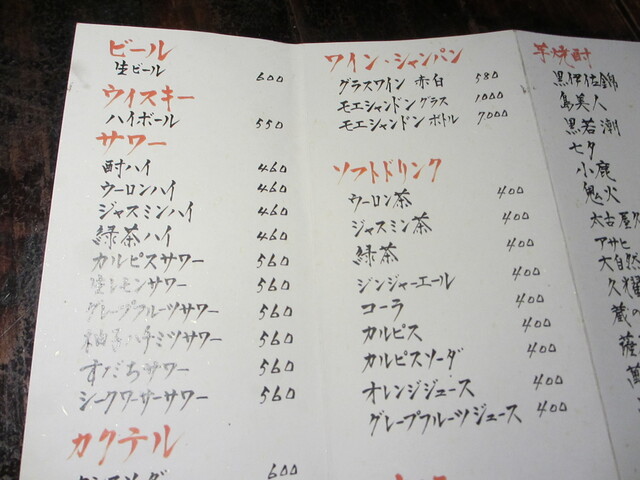 ビール
生ビール 600
ウイスキー
ハイボール 550
サワー
酎ハイ 460
ウーロンハイ 460
ジャスミンハイ 460
緑茶ハイ 460
カルピスサワー 560
塩レモンサワー 560
グレープフルーツサワー 560
ハチミツサワー 560
すだちサワー 560
シークワーサーサワー 560
カクテル
600
ワイン・シャンパン
グラスワイン 赤白 580
モエシャンドン グラス 1000
モエシャンドン ボトル 7000
ソフトドリンク
ウーロン茶 400
ジャスミン茶 400
緑茶 400
ジンジャーエール 400
コーラ 400
カルピス 400
カルピスソーダ 400
オレンジジュース 400
グレープフルーツジュース 400
芋焼酎
黒伊佐錦
島美人
黒若潮
七夕
小鹿
鬼火
太古屋久
アサヒ
大自然
久耀
蔵の
薩
萬